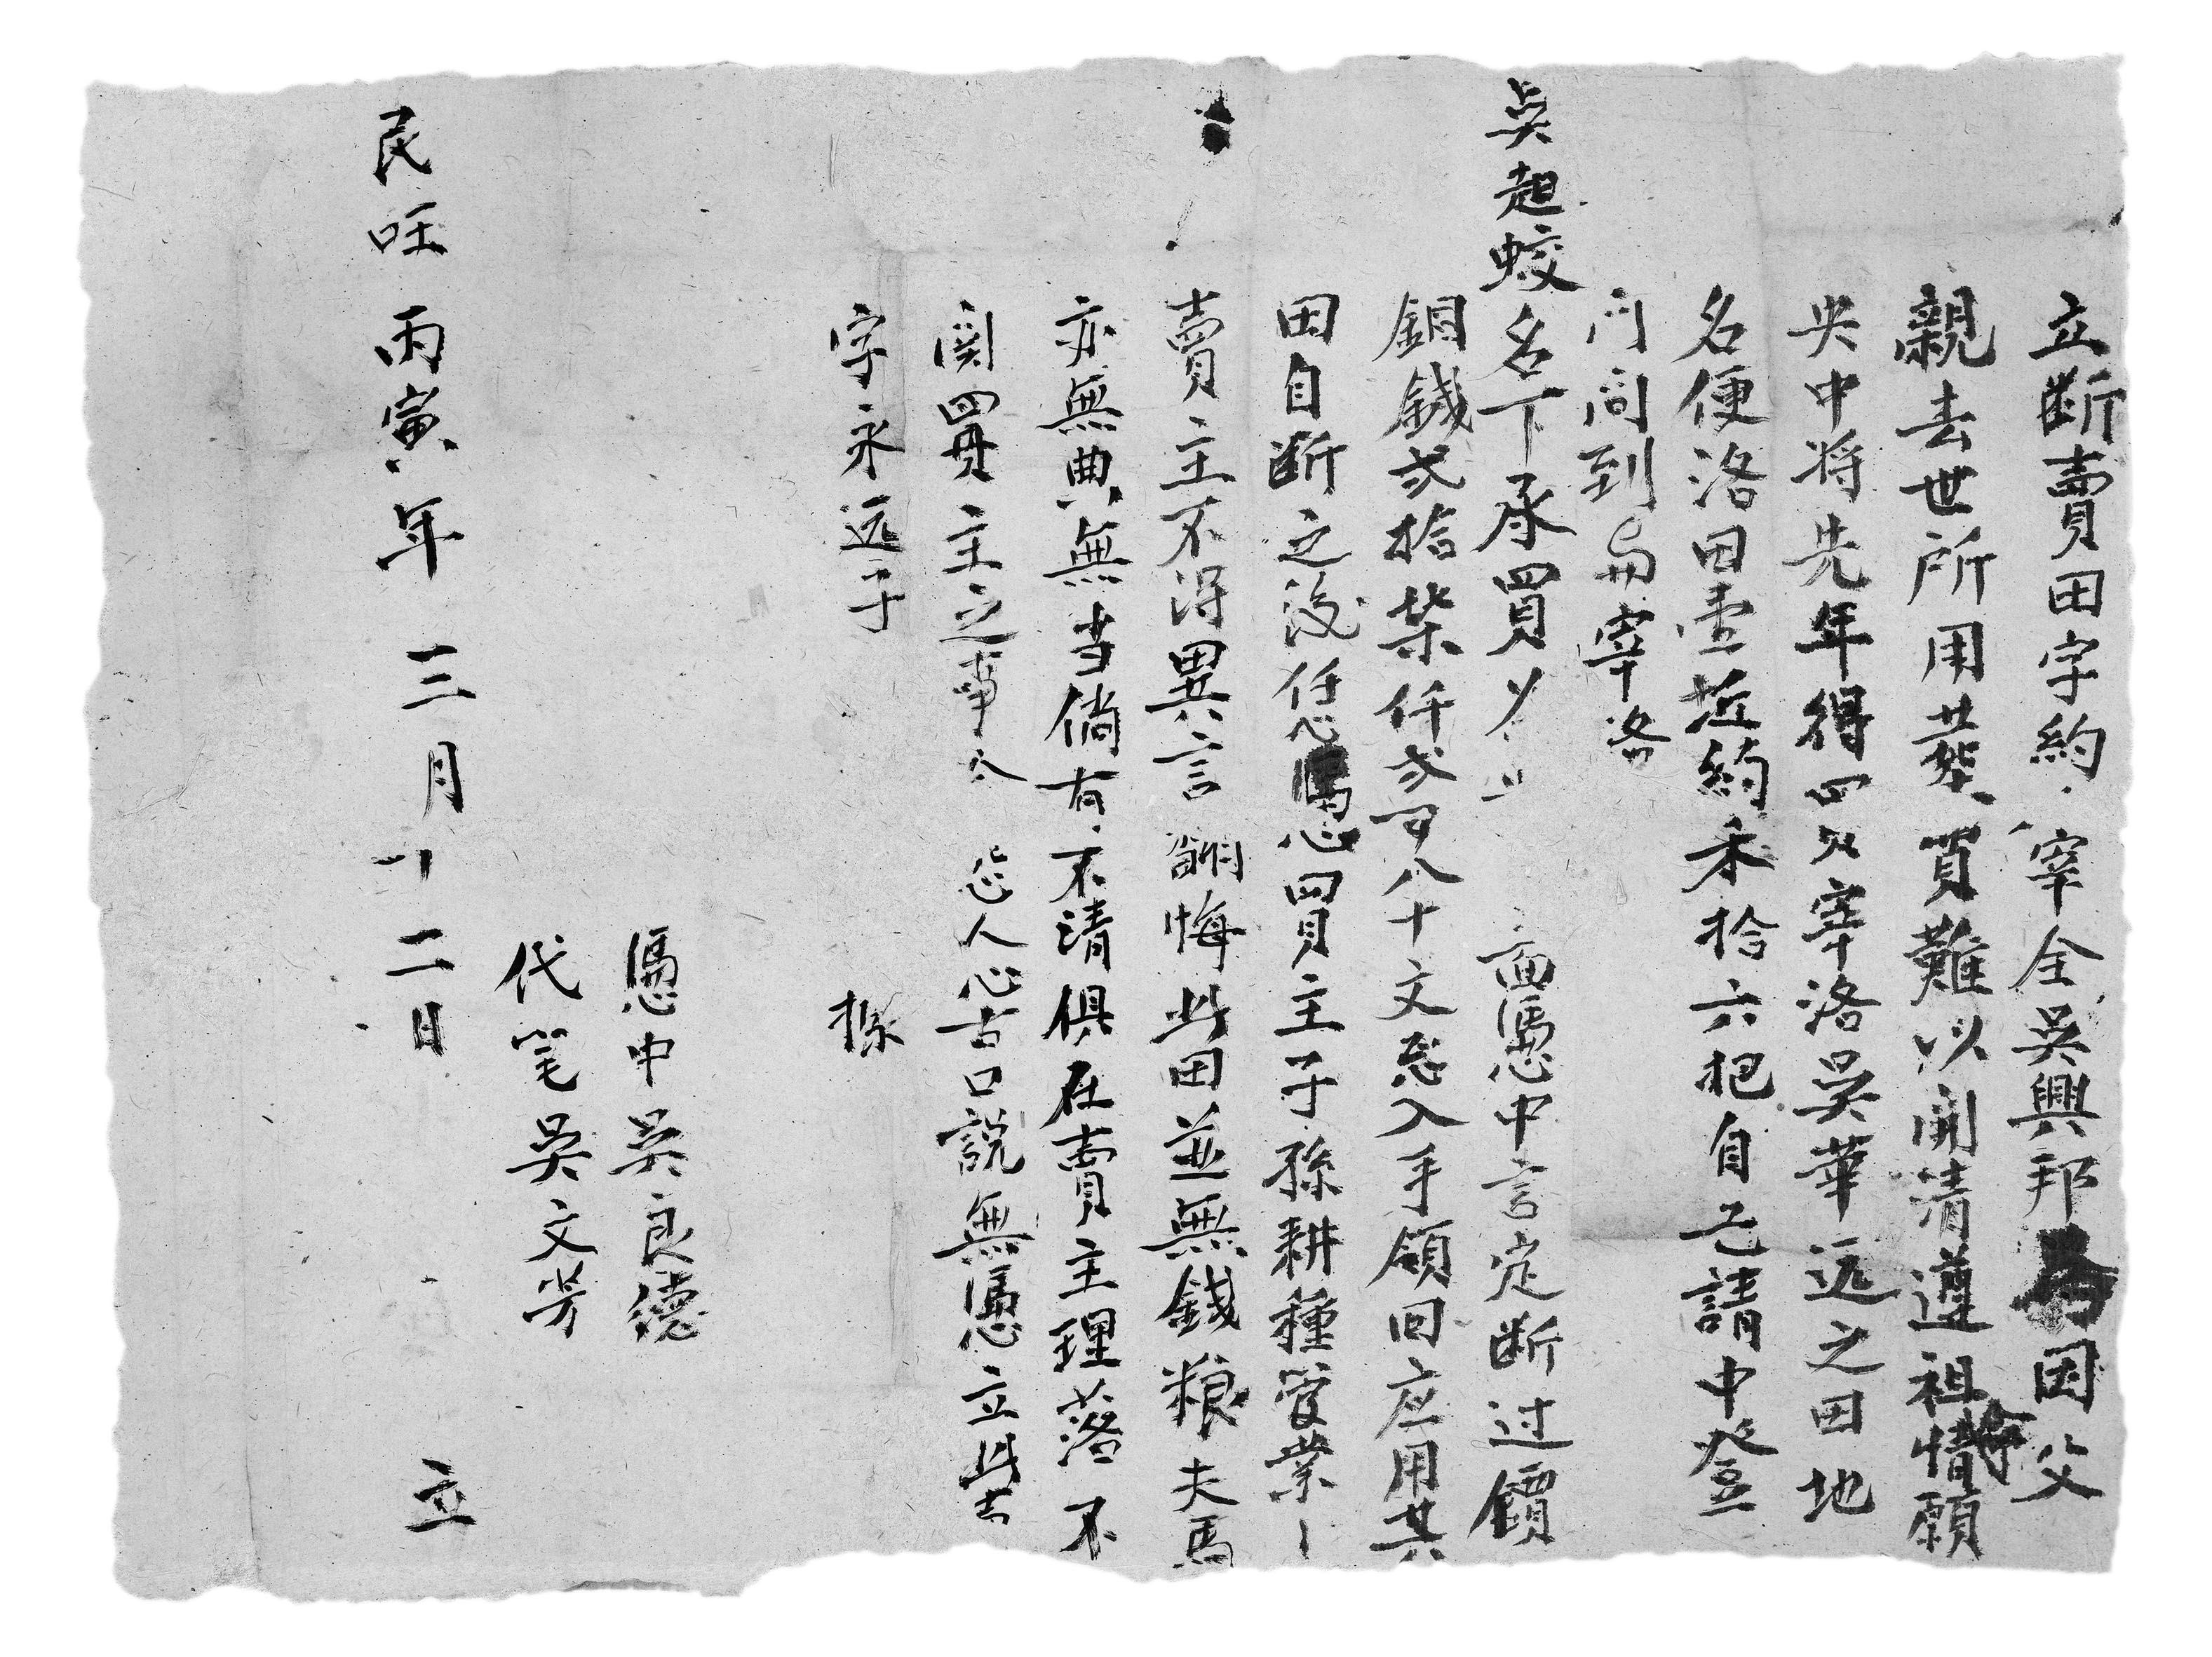 立断賣田字約宰全吳興邦因父
親去世所用葬買難以開清遵祖情願
央中将先年得買宰洛吳華远之田地
名便洛田壹坵約禾拾六把自己請中登
门问到宰洛
吳起蛟名下承買 面憑中言定断过價
銅錢弍拾柒仟弍百八十文入手領回应用其
田自断之後任憑買主子孫耕種受業
賣主不得異言翻悔此田並無錢粮夫馬
亦無典無当倘有不清俱在賣主理落不
関買主之事今恐人心古口説無憑立此
字永远子 據
憑中吳良德
代笔吳文芳
民旺丙寅年三月十二日 立